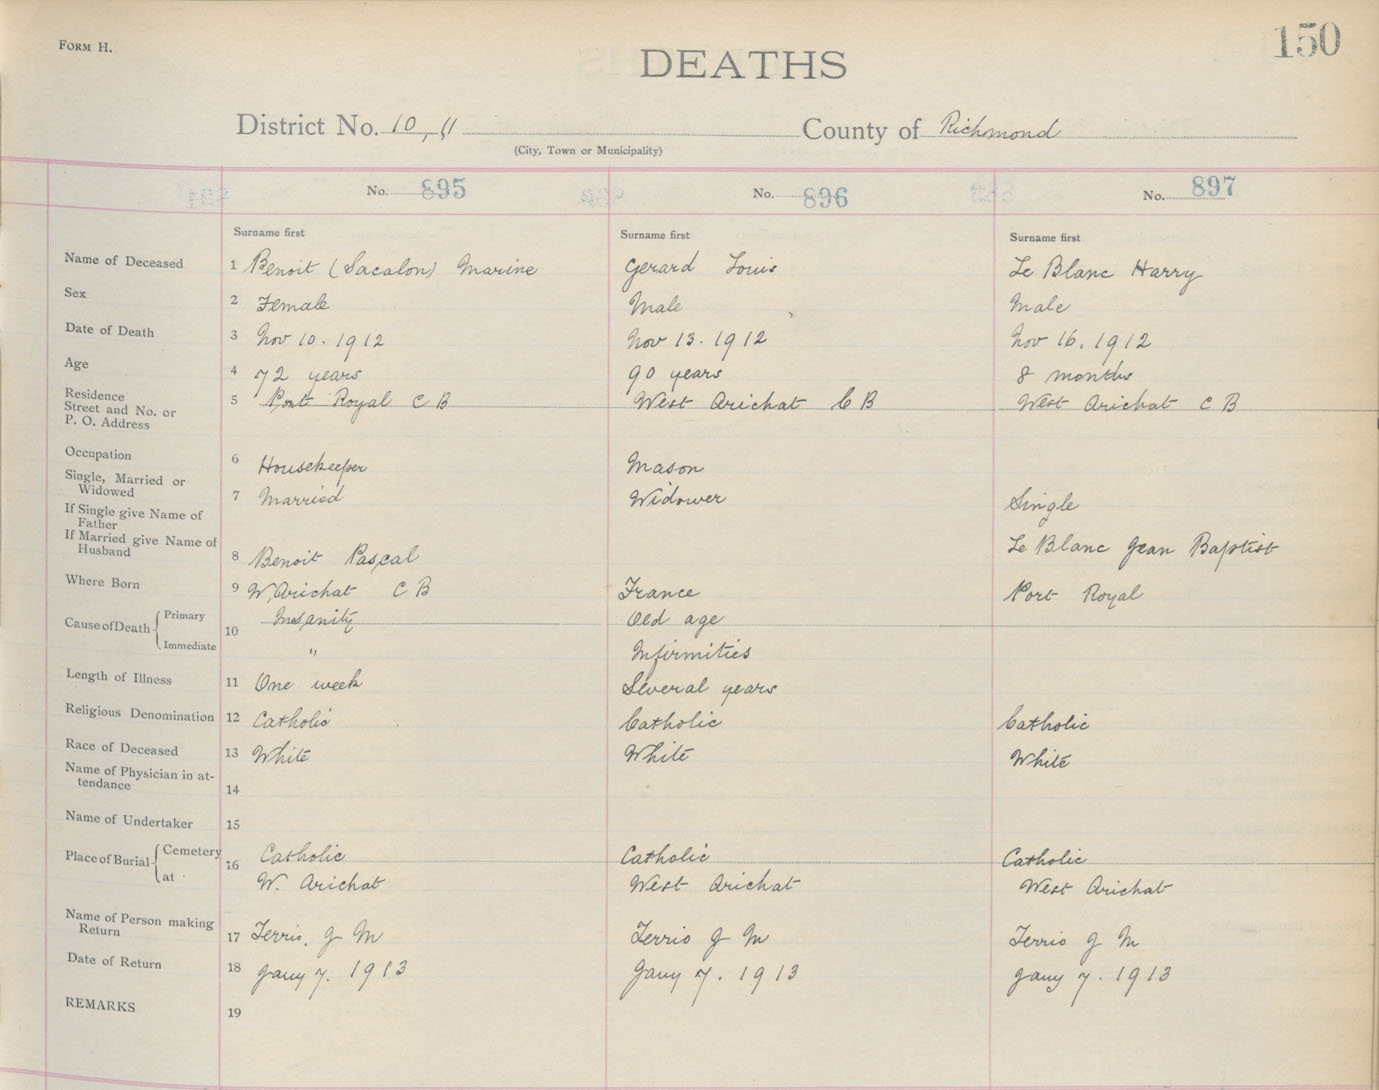 FORM H.
150
DEATHS
District No. 10, 11 County of Richmond
(City, Town or Municipality)
No. 895 No. 896 No. 897
Surname first Surname first Surname first
Name of Deceased 1 Benoit (Sacalon) Marine Gerard Louis Le Blanc Harry
Sex 2 Female Male Male
Date of Death 3 Nov 10. 1912 Nov 13. 1912 Nov 16. 1912
Age 4 72 years 90 years 8 months
Residence
Street and No. or
P. O. Address 5 Port Royal C B West Arichat C B West Arichat C B
Occupation 6 Housekeeper Mason
Single, Married or
Widowed 7 Married Widower Single
If Single give Name of
Father
If Married give Name of
Husband 8 Benoit Pascal Le Blanc Jean Baptist
Where Born 9 W. Arichat C B France Port Royal
Cause of Death Primary 10 Insanity Old age
Immediate " Infirmities
Length of Illness 11 One week Several years
Religious Denomination 12 Catholic Catholic Catholic
Race of Deceased 13 White White White
Name of Physician in at-
tendance 14
Name of Undertaker 15
Place of Burial Cemetery 16 Catholic Catholic Catholic
at W. Arichat West Arichat West Arichat
Name of Person making
Return 17 Terrio, J M Terrio J M Terrio J M
Date of Return 18 Jany 7. 1913 Jany 7. 1913 Jany 7. 1913
REMARKS 19